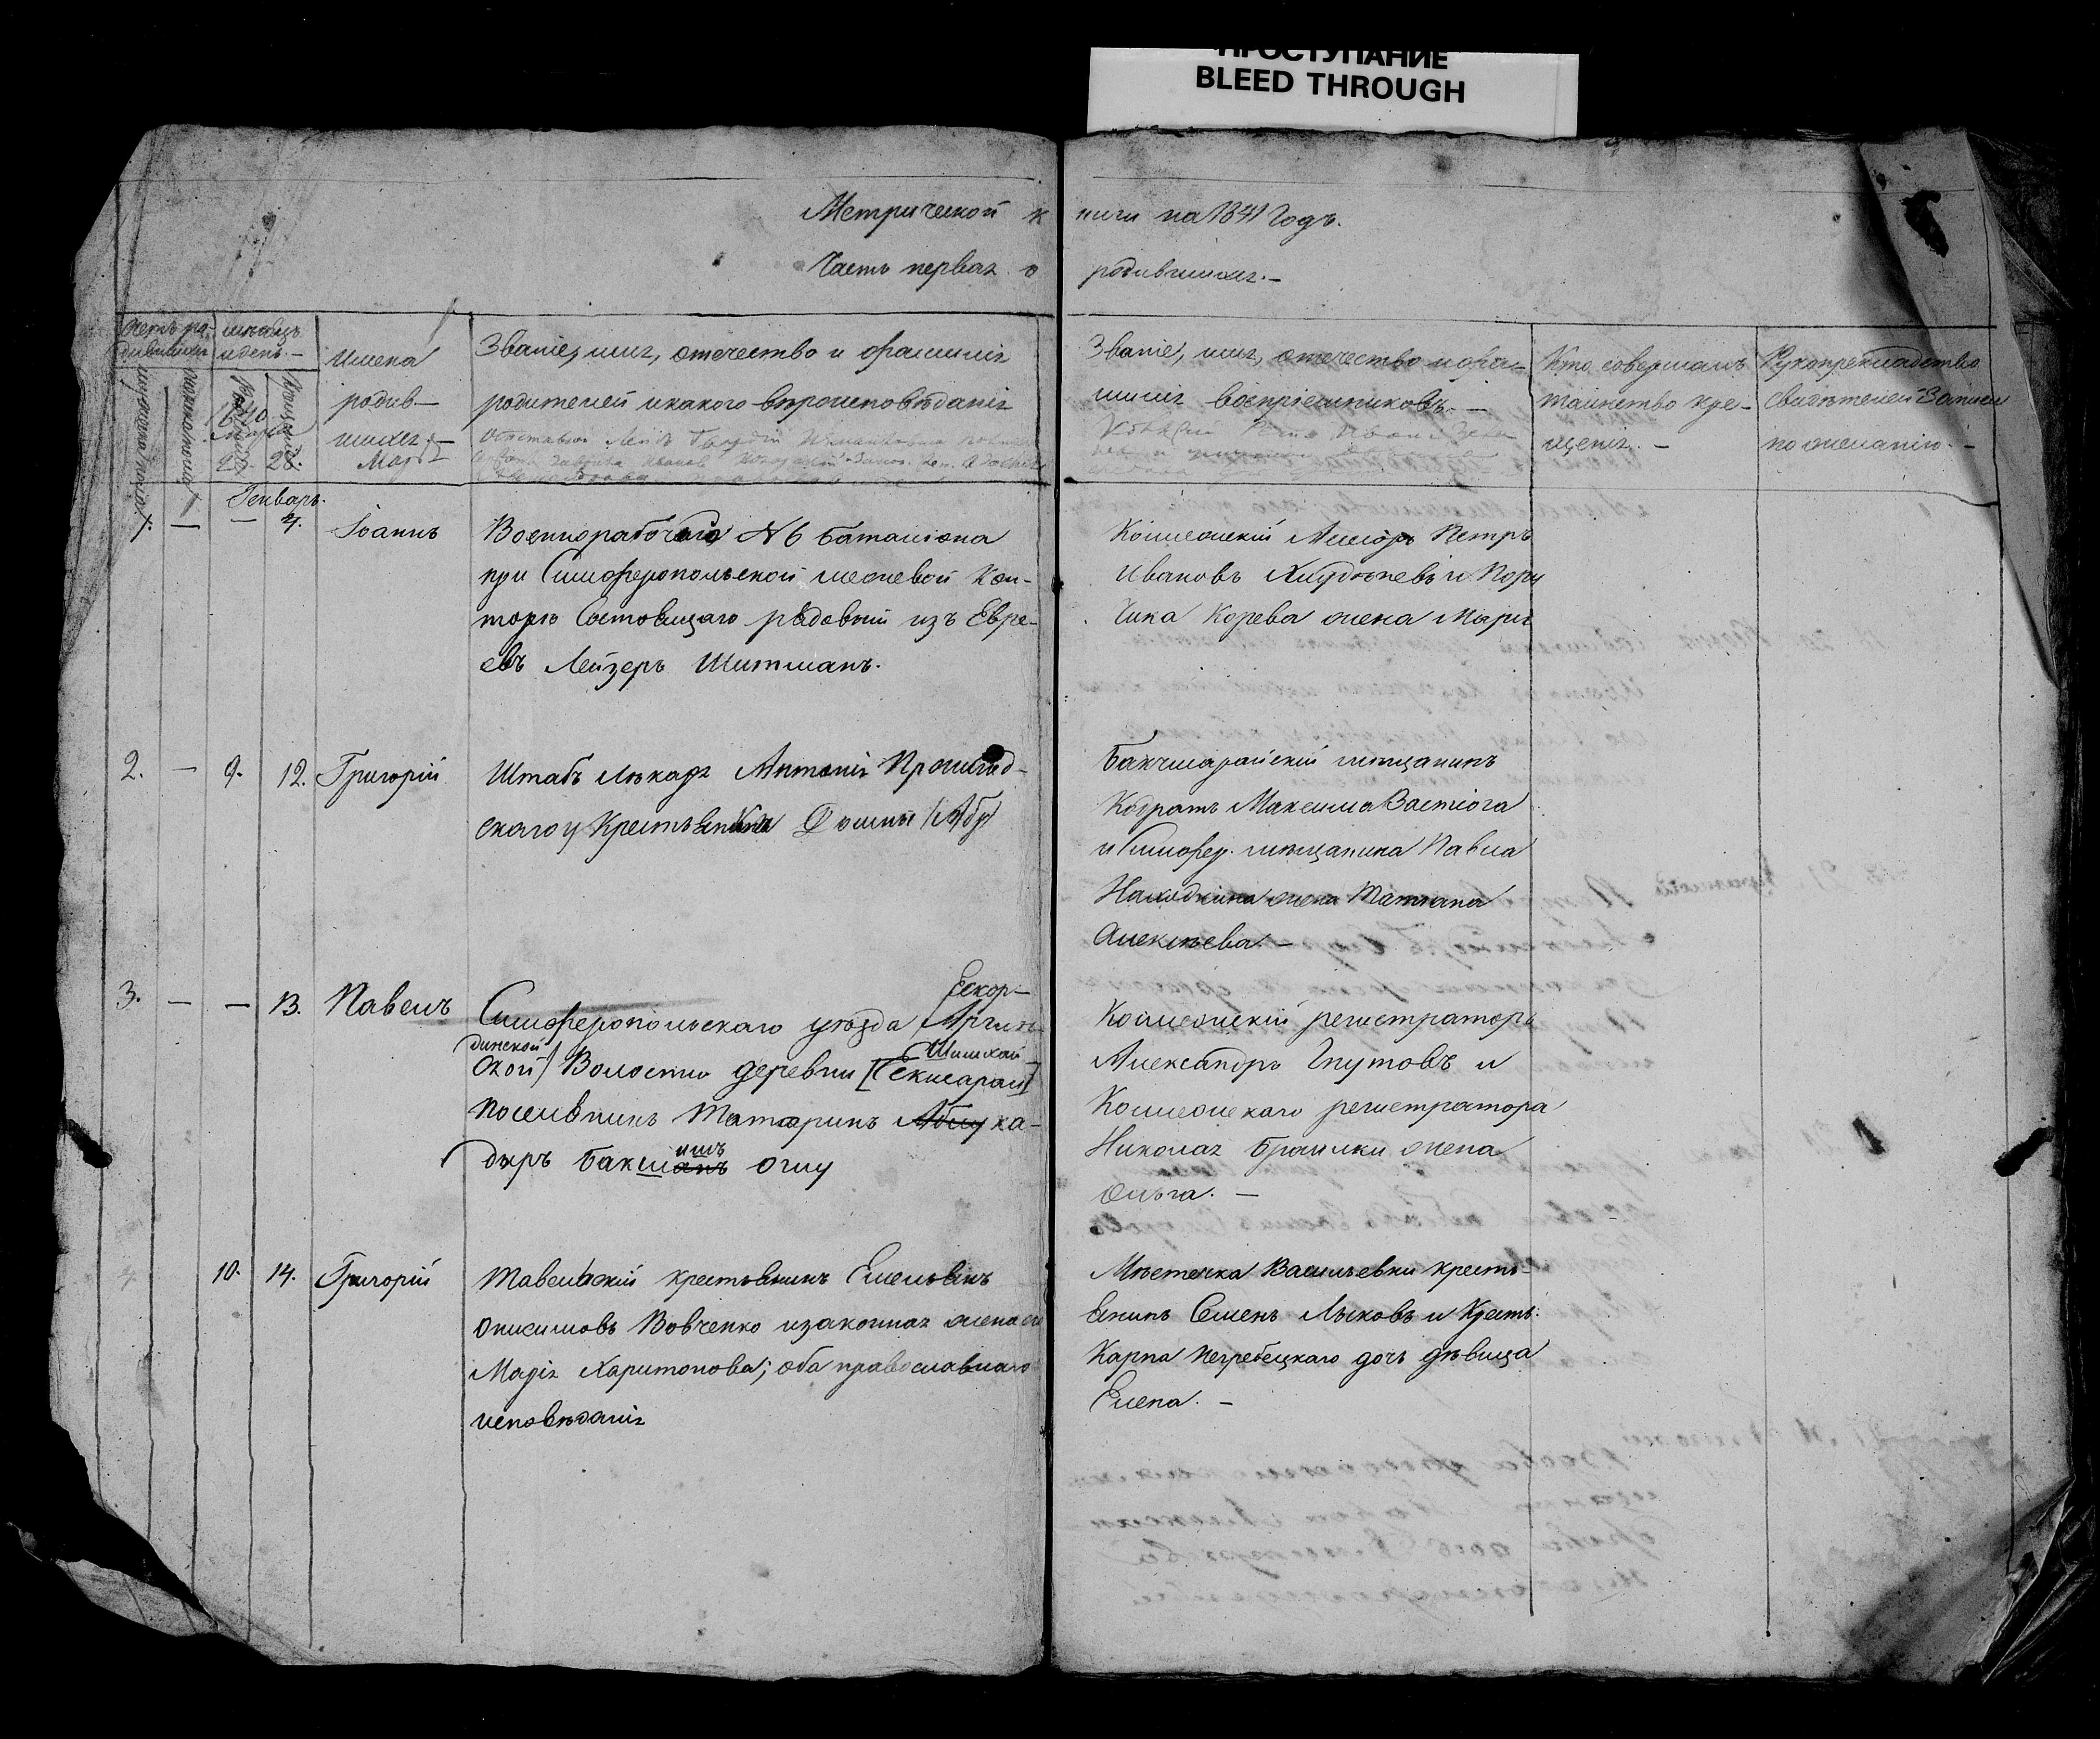 ПРОСТУПАНИЕ
BLEED THROUGH
Метрической книги на 1841 Годъ.
Часть первая о родившихся.–
Счетъ ро-
дившихся
мѣсяцъ
и день.–
мужеска пола
женска пола
1840
Марта
28.
Имена
родив-
шихся.–
Марія
Званіе, имя, отечество и фамилія
родителей и какого вѣроисповѣданія
Званіе, имя, отечество и фа-
милія воспріемниковъ.–
Кто совершалъ
таинство кре-
щенія.–
Рукоприкладство
свидѣтелей Записи
по желанію.–
Генварь.
1. — — 4. Іоаннъ
Военнорабочаго № 6 баталіона
при Симферопольской межевой Кон-
торѣ Состоящаго рядовый изъ Евре-
евъ Лейзеръ Шитманъ.
Колежскій Асесоръ Петръ
Ивановъ Худнѣевъ и Пору
чика Корева жена Марія
2. — 9. 12. Григорій
Штабъ лѣкаря Антонія
скаго Домны
Бакчисарайскій мѣщанинъ
Кодратъ Максима
и Симфер. мѣщанина Павла
жена Татіана
Алексѣева.–
3. — — 13. Павелъ
Симферопольскаго уѣзда Аргин
Ескор-
динской
ской) Волости деревни [Ексисарай]
Шишхай
поселянинъ Татаринъ Абду ка-
дыръ бакшанъ оглу
ишъ
Колежскій регистраторъ
Александръ Гнутовъ и
Колежскаго регистратора
Николая Браилки жена
Ольга.–
10. 14. Григорій
Тавельскій крестьянинъ Емельянъ
Онисимовъ Вовченко и законная жена его
Марія Харитонова; оба православнаго
исповѣданія
Мѣстечка Васильевки кресть-
янинъ Семенъ Лыковъ и Кресть.
Карпа Негребецкаго дочь дѣвица
Елена.–